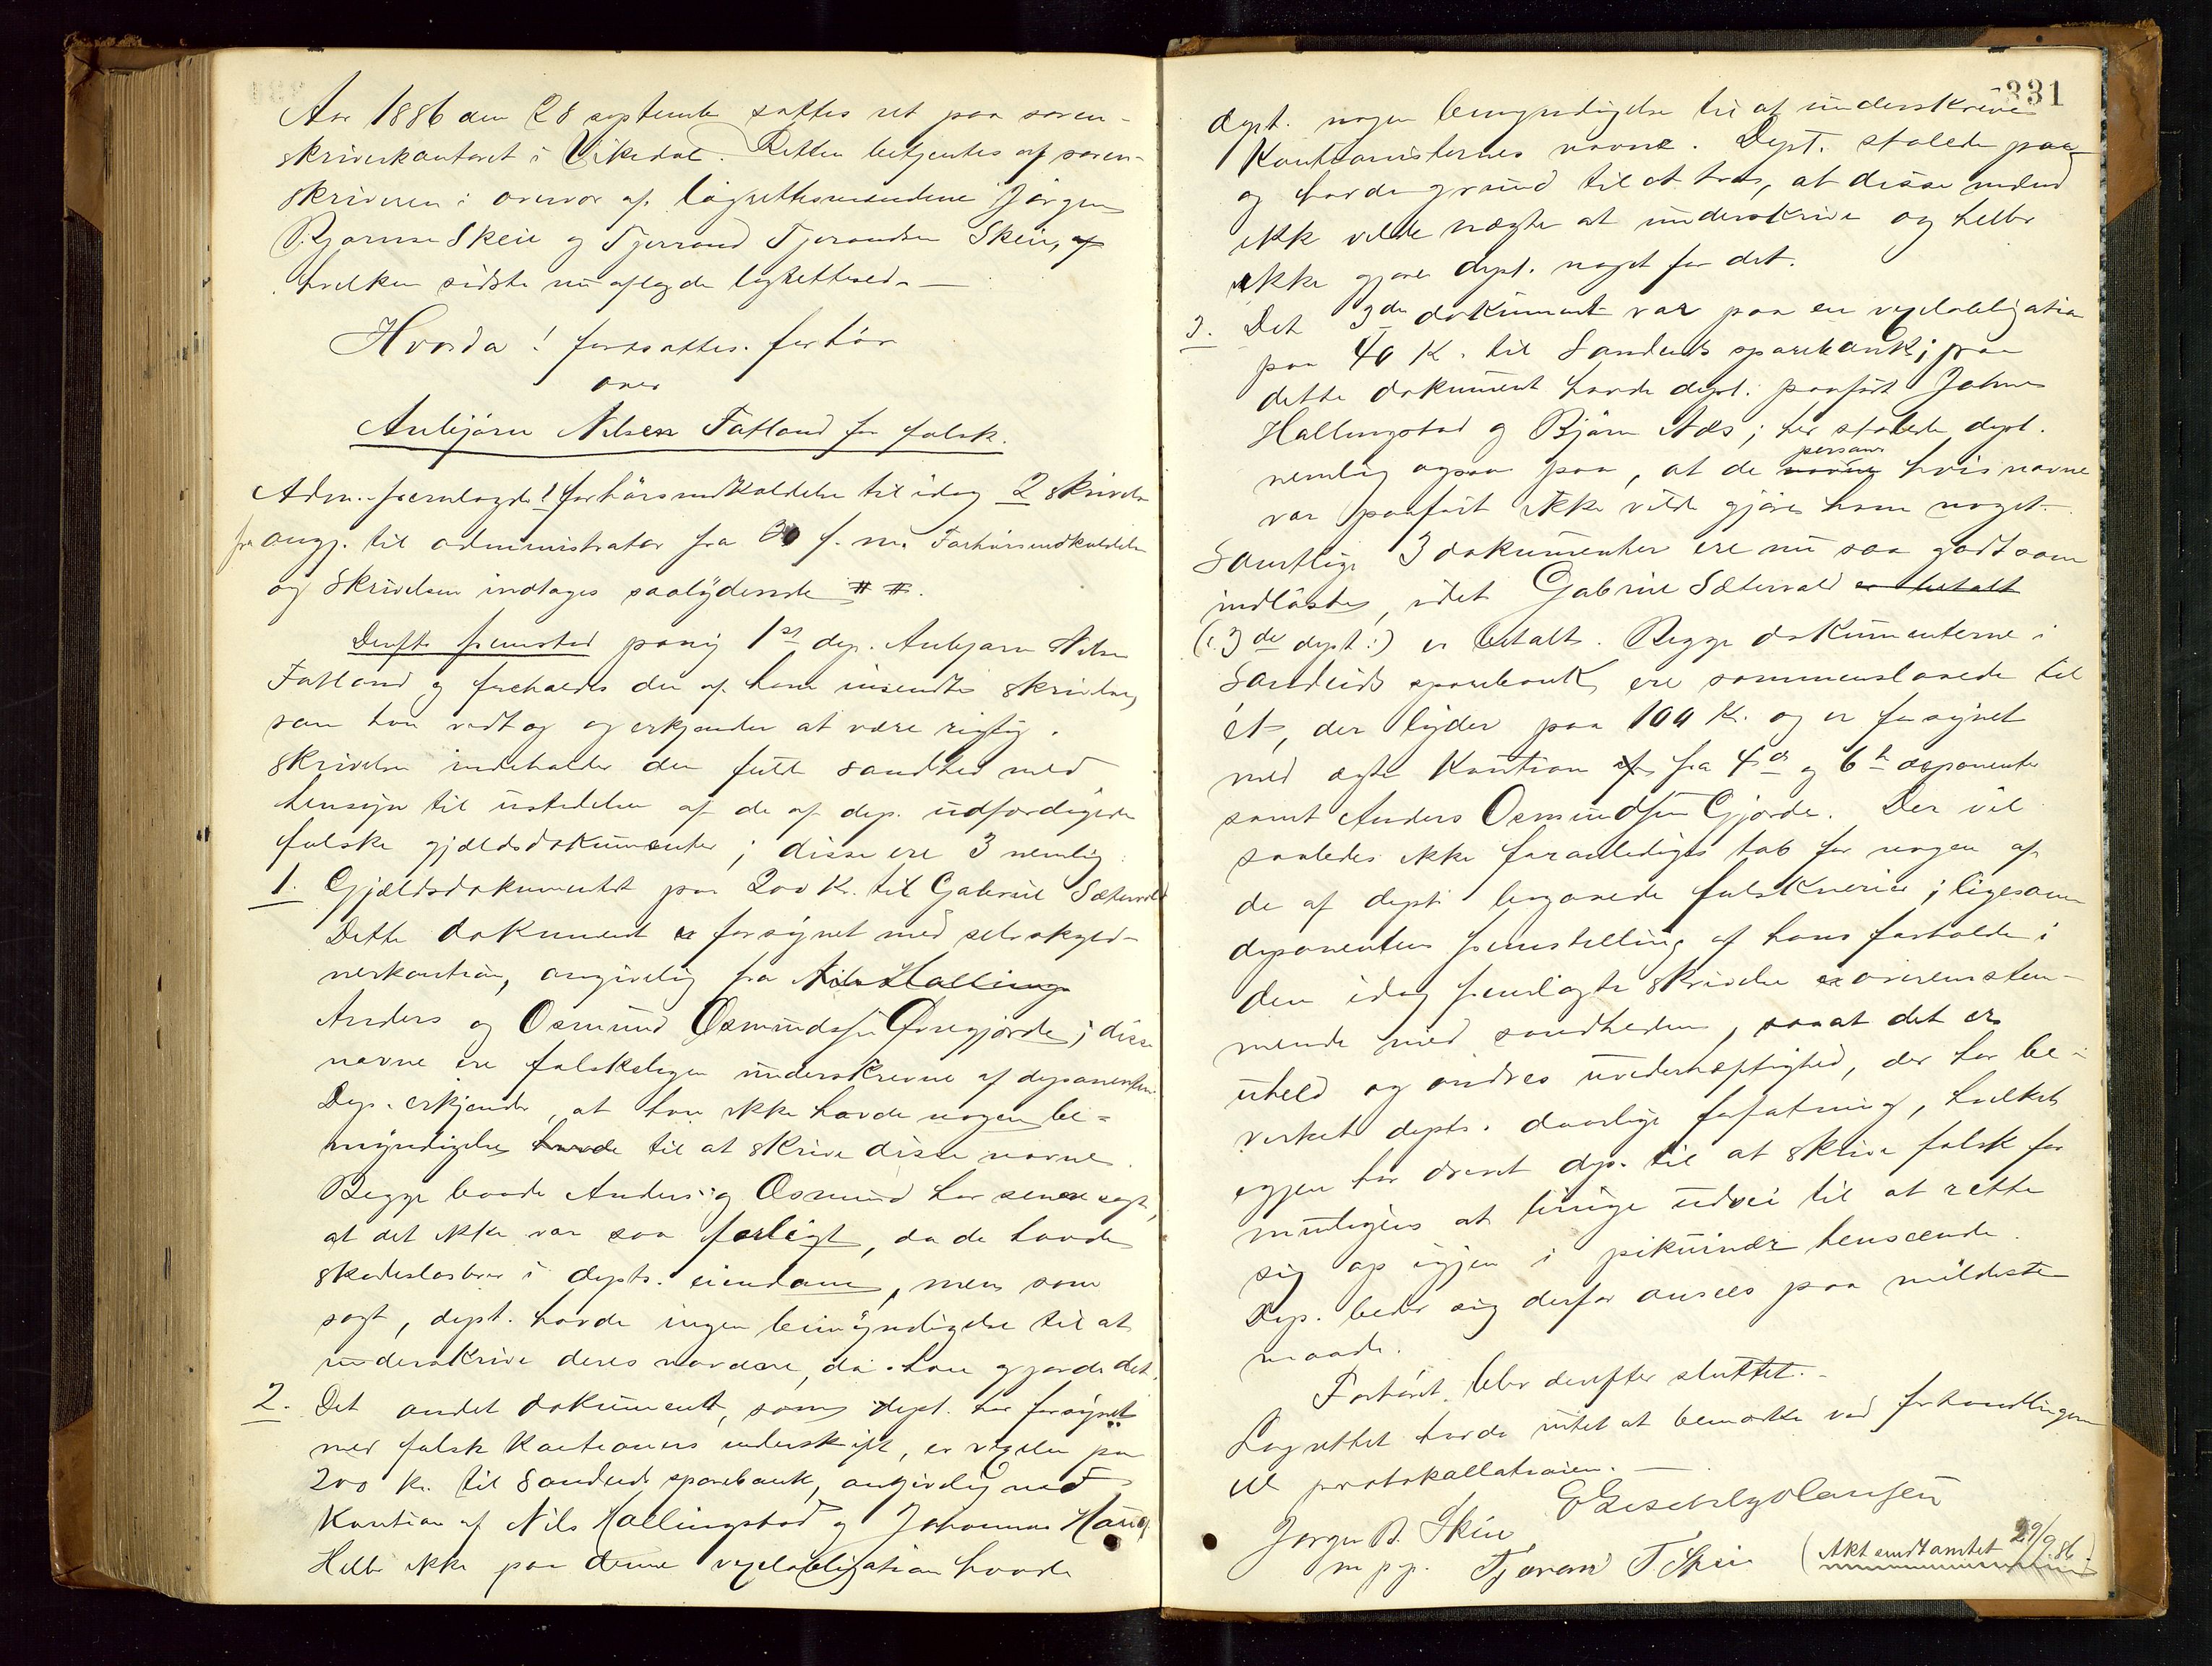 Aar 1886 den 28 septembr sattes ret paa soren-
skriverkontoret i Vikedal. Retten betjentes af soren-
skriveren i overvær af lagrettesmændene Jørgen
Bjørnsen Skeie og Tjerand Tjerandsen Skeie, af
hvilken sidste nu aflagde lagretteed. —
Hvorda! fortsattes forhør
over
Anbjørn Nilsen Fatland for falsk.
Adm. fremlagde 1 forhørsindkaldelse til idag 2 skrivelse
fra angj. til administrator fra 20 f. m. Forhørsindkaldelse
og skrivelsen indtages saalydende # #.
Derefter fremstod paany 1ste dep. Anbjørn Nilsen
Fatland og foreholdes den af ham indsendte skrivelse,
som han vedtog og erkjender at være rigtig.
Skrivelsen indeholder den fulde sandhed med
hensyn til udstedelsen af de af dep. udfærdigede
falske gjældsdokumenter; disse ere 3 nemlig
1. Gjældsdokumentet paa 200 Kr. til Gabriel Sætervold
Dette dokument er forsynet med selvskyld-
nerkaution, angivelig fra Nils Halling
Anders og Osmund Osmundsen Øvregjerde; disse
navne ere falskeligen underskrevne af deponenten.
Dep. erkjender, at han ikke havde nogen be-
myndigelse havde til at skrive disse navne.
Begge baade Anders og Osmund har senere sagt,
at det ikke var saa farligt, da de havde
skadesløsbrev i depts. eiendom, men som
sagt, dept. havde ingen bemyndigelse til at
underskrive deres navne, da han gjorde det.
2. Det andet dokument, som dept. har forsynet
med falsk kautioners underskrift, er vexelen paa
200 kr. til Sandeids sparebank, angivelig med
Kaution af Nils Hallingstad og Johannes Haug.
Heller ikke paa denne vexelobligation havde
331
dept. nogen bemyndigelse til at underskrive
Kautionisternes navne. Dept. stolede paa
og havde grund til at tro, at disse mænd
ikke vilde nægte at underskrive og heller
ikke gjøre dept. noget for det.
3. Det 3die dokument var paa en vexelobligation
paa 40 K. til Sandeids sparebank; paa
dette dokument havde dept. paaført Johannes
Hallingstad og Bjørn Aas; her stolede dept.
nemlig ogsaa paa, at de navne personer hvis navne
var paaført ikke vilde gjøre ham noget.
Samtlige 3 dokumenter ere nu saa godt som
indløste, idet Gabriel Sætervold er betalt
(: 3die dept :) er betalt. Begge dokumenterne i
Sandeids sparebank ere sammenslaaede til
ét, der lyder paa 100 Kr. og er forsynet
med ægte Kaution af fra 4de og 6te deponenter
samt Anders Osmundsen Gjerde. Der vil
saaledes ikke foranlediges tab for nogen af
de af dept. begaaede falsknerier; ligesom
deponentens fremstilling af hans forholde i
den idag fremlagte skrivelse er overensstem-
mende med sandheden, saaat det er
uheld og andres uvederhæftighed, der har be-
virket depts. daarlige forfatning, hvilket
igjen har drevet dep. til at skrive falsk for
muligens at bringe udvei til at rette
sig op igjen i pekuniær henseende.
Dep. beder sig derfor ansees paa mildeste
maade.
Forhøret blev derefter sluttet. -
Lagrettet havde intet at bemærke ved forhandlingen
ell protokollationen. —
Jørgen B. Skeie
m p p. Tjerand T Skeie
(Akt sendt amtet 29/9 86.)